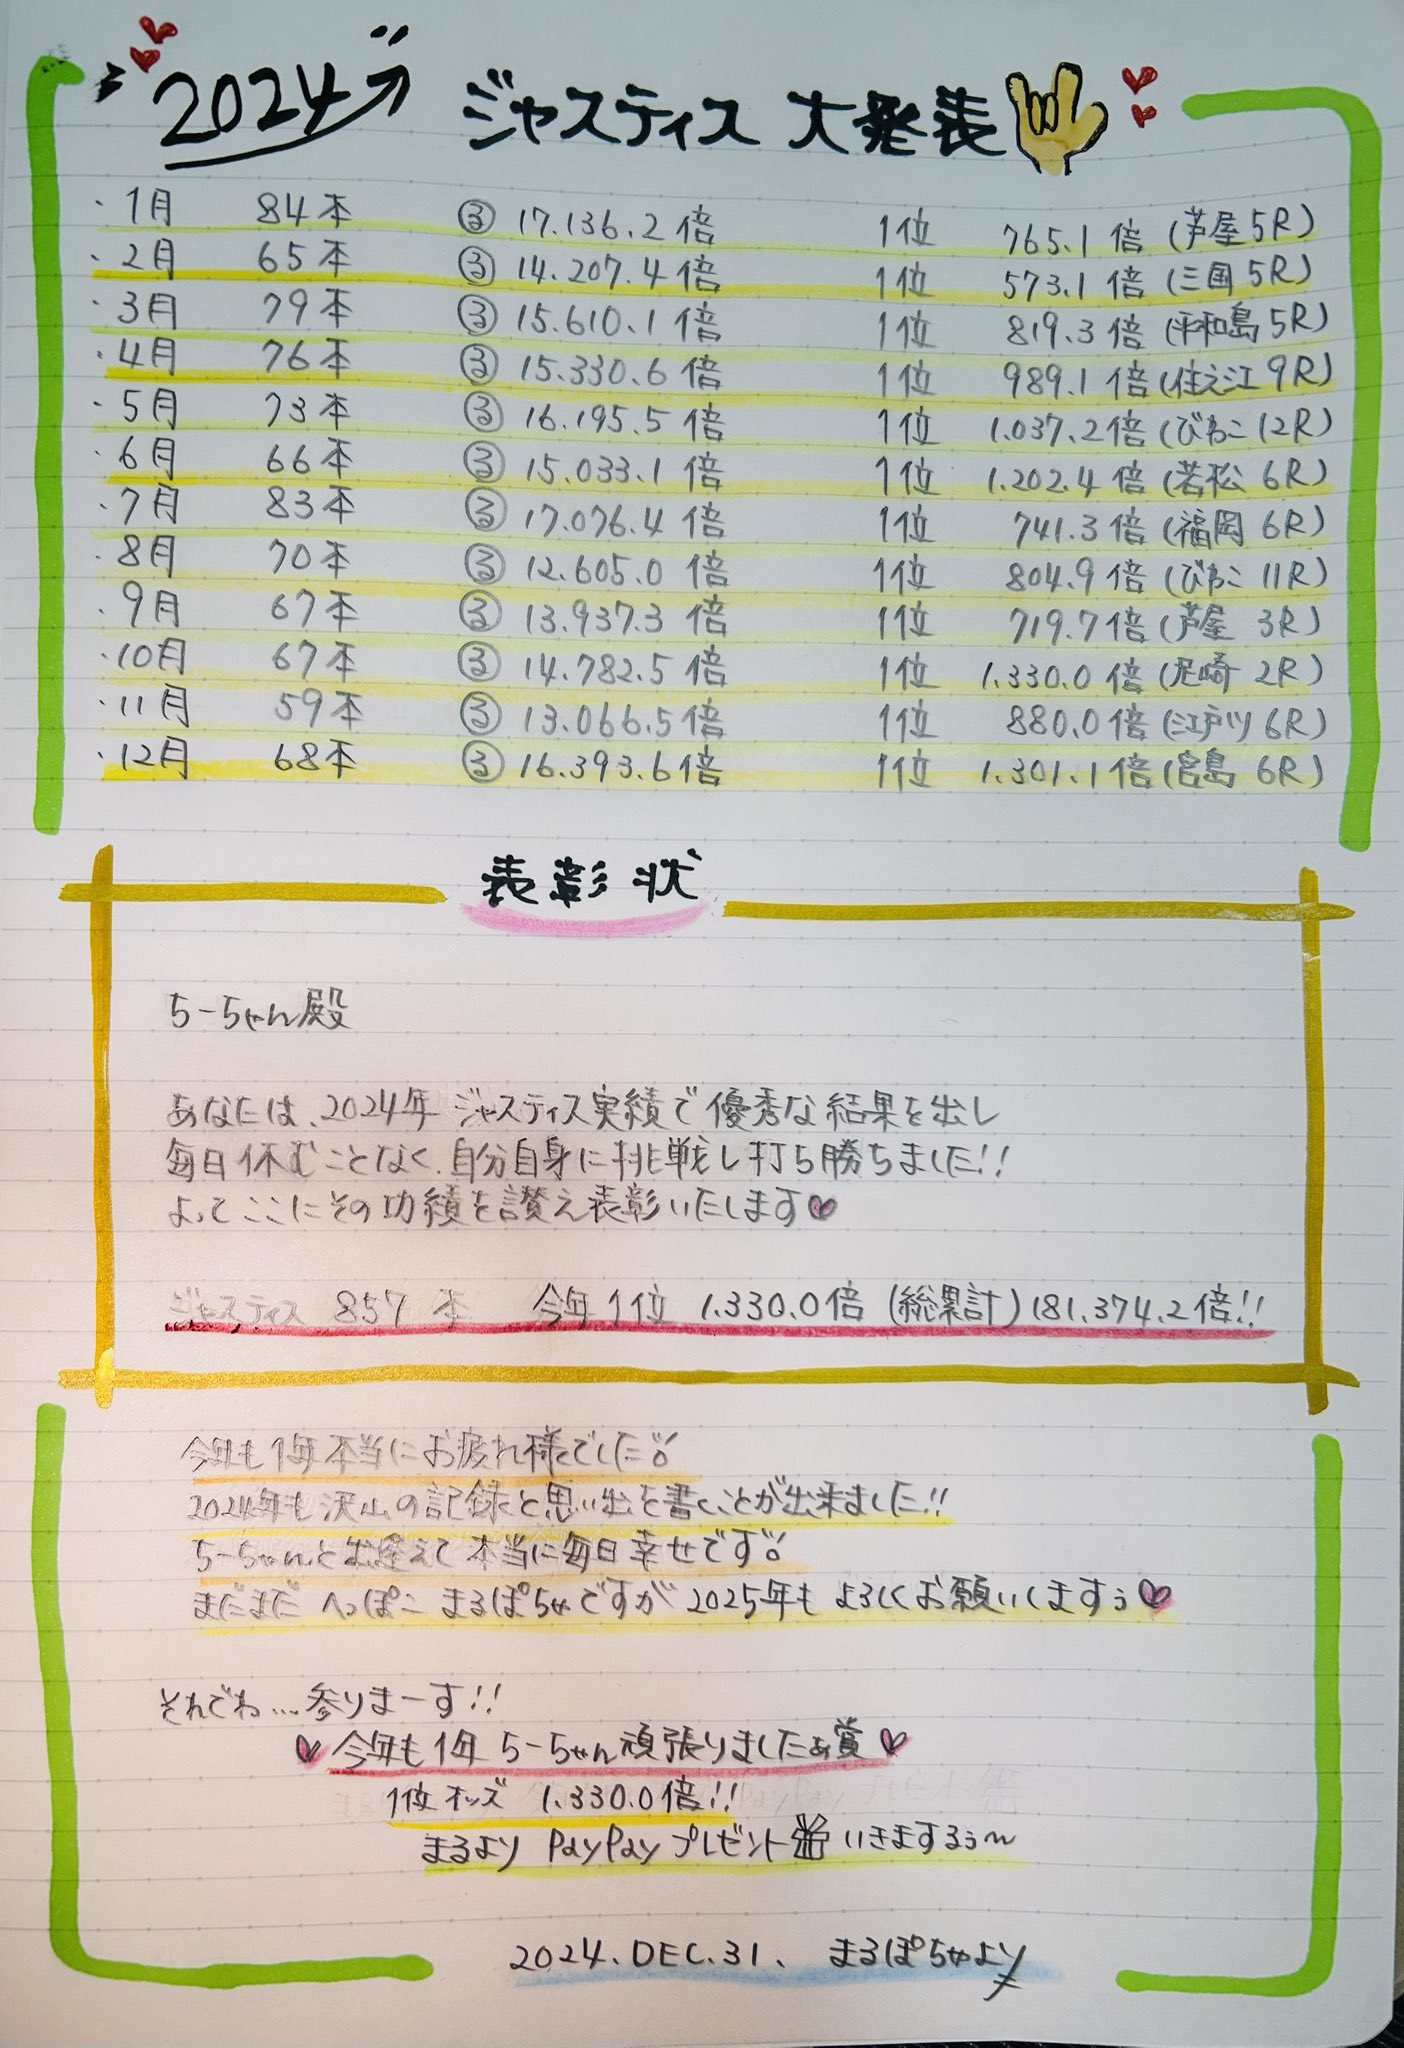 2024 ジャスティス 大発表
・1月 84本 ㋸ 17.136.2倍 1位 765.1倍 (芦屋 5R)
・2月 65本 ㋸ 14.207.4倍 1位 573.1倍 (三国 5R)
・3月 79本 ㋸ 15.610.1倍 1位 819.3倍 (平和島 5R)
・4月 76本 ㋸ 15.330.6倍 1位 989.1倍 (住之江 9R)
・5月 73本 ㋸ 16.195.5倍 1位 1.037.2倍 (びわこ 12R)
・6月 66本 ㋸ 15.033.1倍 1位 1.202.4倍 (若松 6R)
・7月 83本 ㋸ 17.076.4倍 1位 741.3倍 (福岡 6R)
・8月 70本 ㋸ 12.605.0倍 1位 804.9倍 (びわこ 11R)
・9月 67本 ㋸ 13.937.3倍 1位 719.7倍 (芦屋 3R)
・10月 67本 ㋸ 14.782.5倍 1位 1.330.0倍 (尼崎 2R)
・11月 59本 ㋸ 13.066.5倍 1位 880.0倍 (江戸川 6R)
・12月 68本 ㋸ 16.393.6倍 1位 1.301.1倍 (宮島 6R)
表彰状
ちーちゃん殿
あなたは、2024年 ジャスティス実績で優秀な結果を出し
毎日休むことなく、自分自身に挑戦し打ち勝ちました!!
よってここにその功績を讃え表彰いたします
ジャスティス 857本 今年1位 1.330.0倍 (総累計) 181.374.2倍!!
今年も1年本当にお疲れ様でした
2024年も沢山の記録と思い出を書くことが出来ました!!
ちーちゃんと出逢えて本当に毎日幸せです
まだまだ へっぽこ まるぽちゃですが 2025年も よろしくお願いしますぅ
それでわ…参りまーす!!
今年も1年 ちーちゃん頑張りましたぁ賞
1位オッズ 1.330.0倍!!
まるより PayPay プレゼント いきまするぅ〜
2024.DEC.31. まるぽちゃより